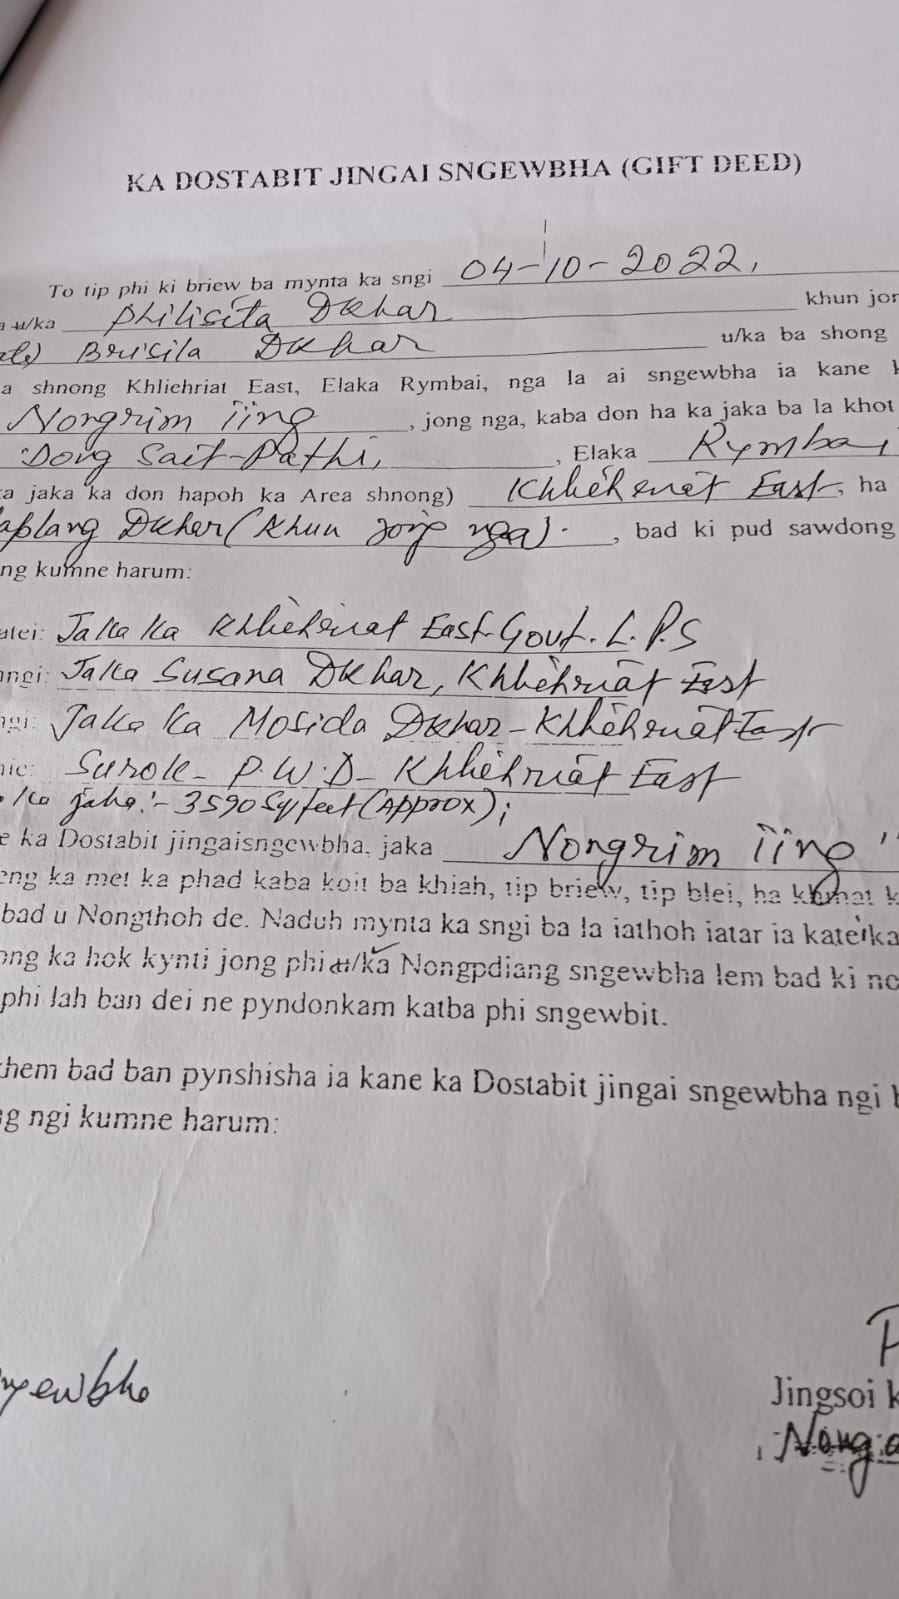 KA DOSTABIT JINGAI SNGEWBHA (GIFT DEED)
To tip phi ki briew ba mynta ka sngi 04-10-2022,
a u/ka Philisita Dkhar khun jon
ate) Bricila Dkhar u/ka ba shong
a shnong Khliehriat East, Elaka Rymbai, nga la ai sngewbha ia kane k
Nongrim iing, jong nga, kaba don ha ka jaka ba la khot
Dong Sait-Pathi, , Elaka Rymbai
a jaka ka don hapoh ka Area shnong) Khliehriat East, ha
aplang Dkhar (Khun jong nga). , bad ki pud sawdong
ng kumne harum:
atei: Jaka ka Khliehriat East Govt. L.P.S
angi: Jaka Susana Dkhar, Khliehriat East
ngi: Jaka ka Mosida Dkhar - Khliehriat East
hie: Surok - P.W.D - Khliehriat East
ka jaka:- 3590 Sq feet (Approx);
e ka Dostabit jingaisngewbha, jaka Nongrim iing"
eng ka met ka phad kaba koit ba khiah, tip briew, tip blei, ha khmat k
bad u Nongthoh de. Naduh mynta ka sngi ba la iathoh iatar ia katei ka
ong ka hok kynti jong phi u/ka Nongpdiang sngewbha lem bad ki no
phi lah ban dei ne pyndonkam katba phi sngewbit.
khem bad ban pynshisha ia kane ka Dostabit jingai sngewbha ngi b
ng ngi kumne harum:
P
ngewbha Jingsoi k
Nong